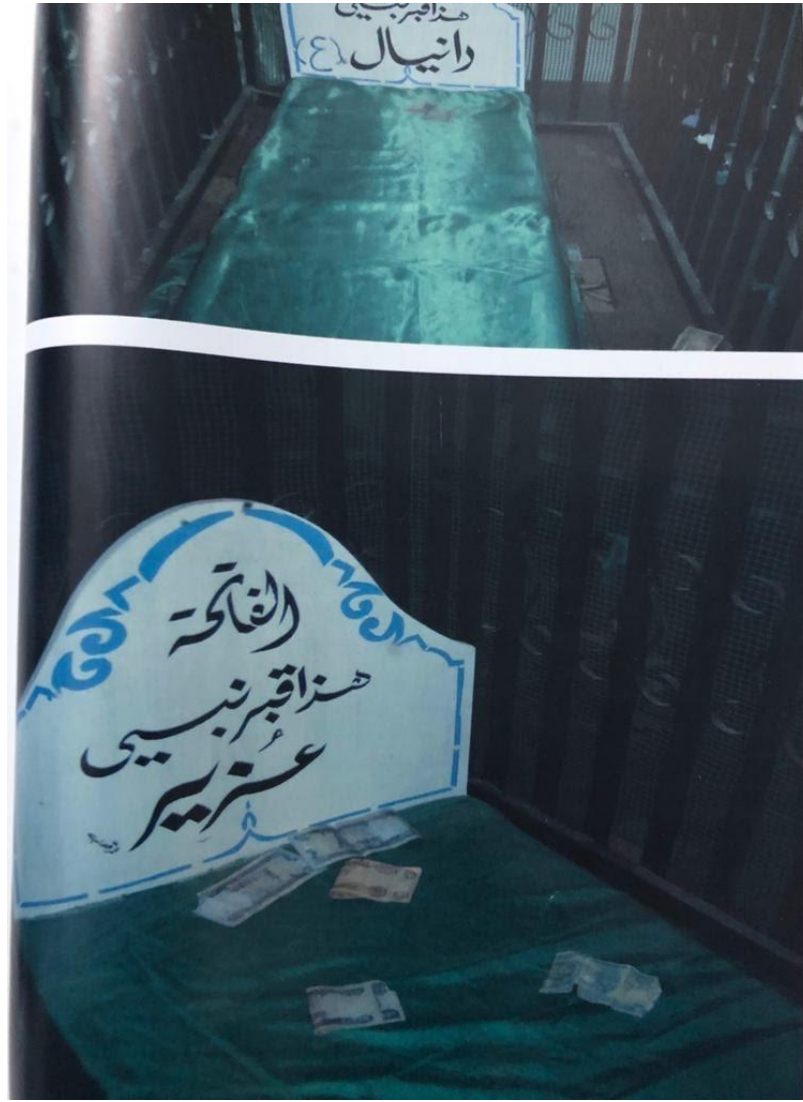 هذا قبر نبيي
دانيال (ع)
الفاتحة
هذا قبر نبيي
عُزير